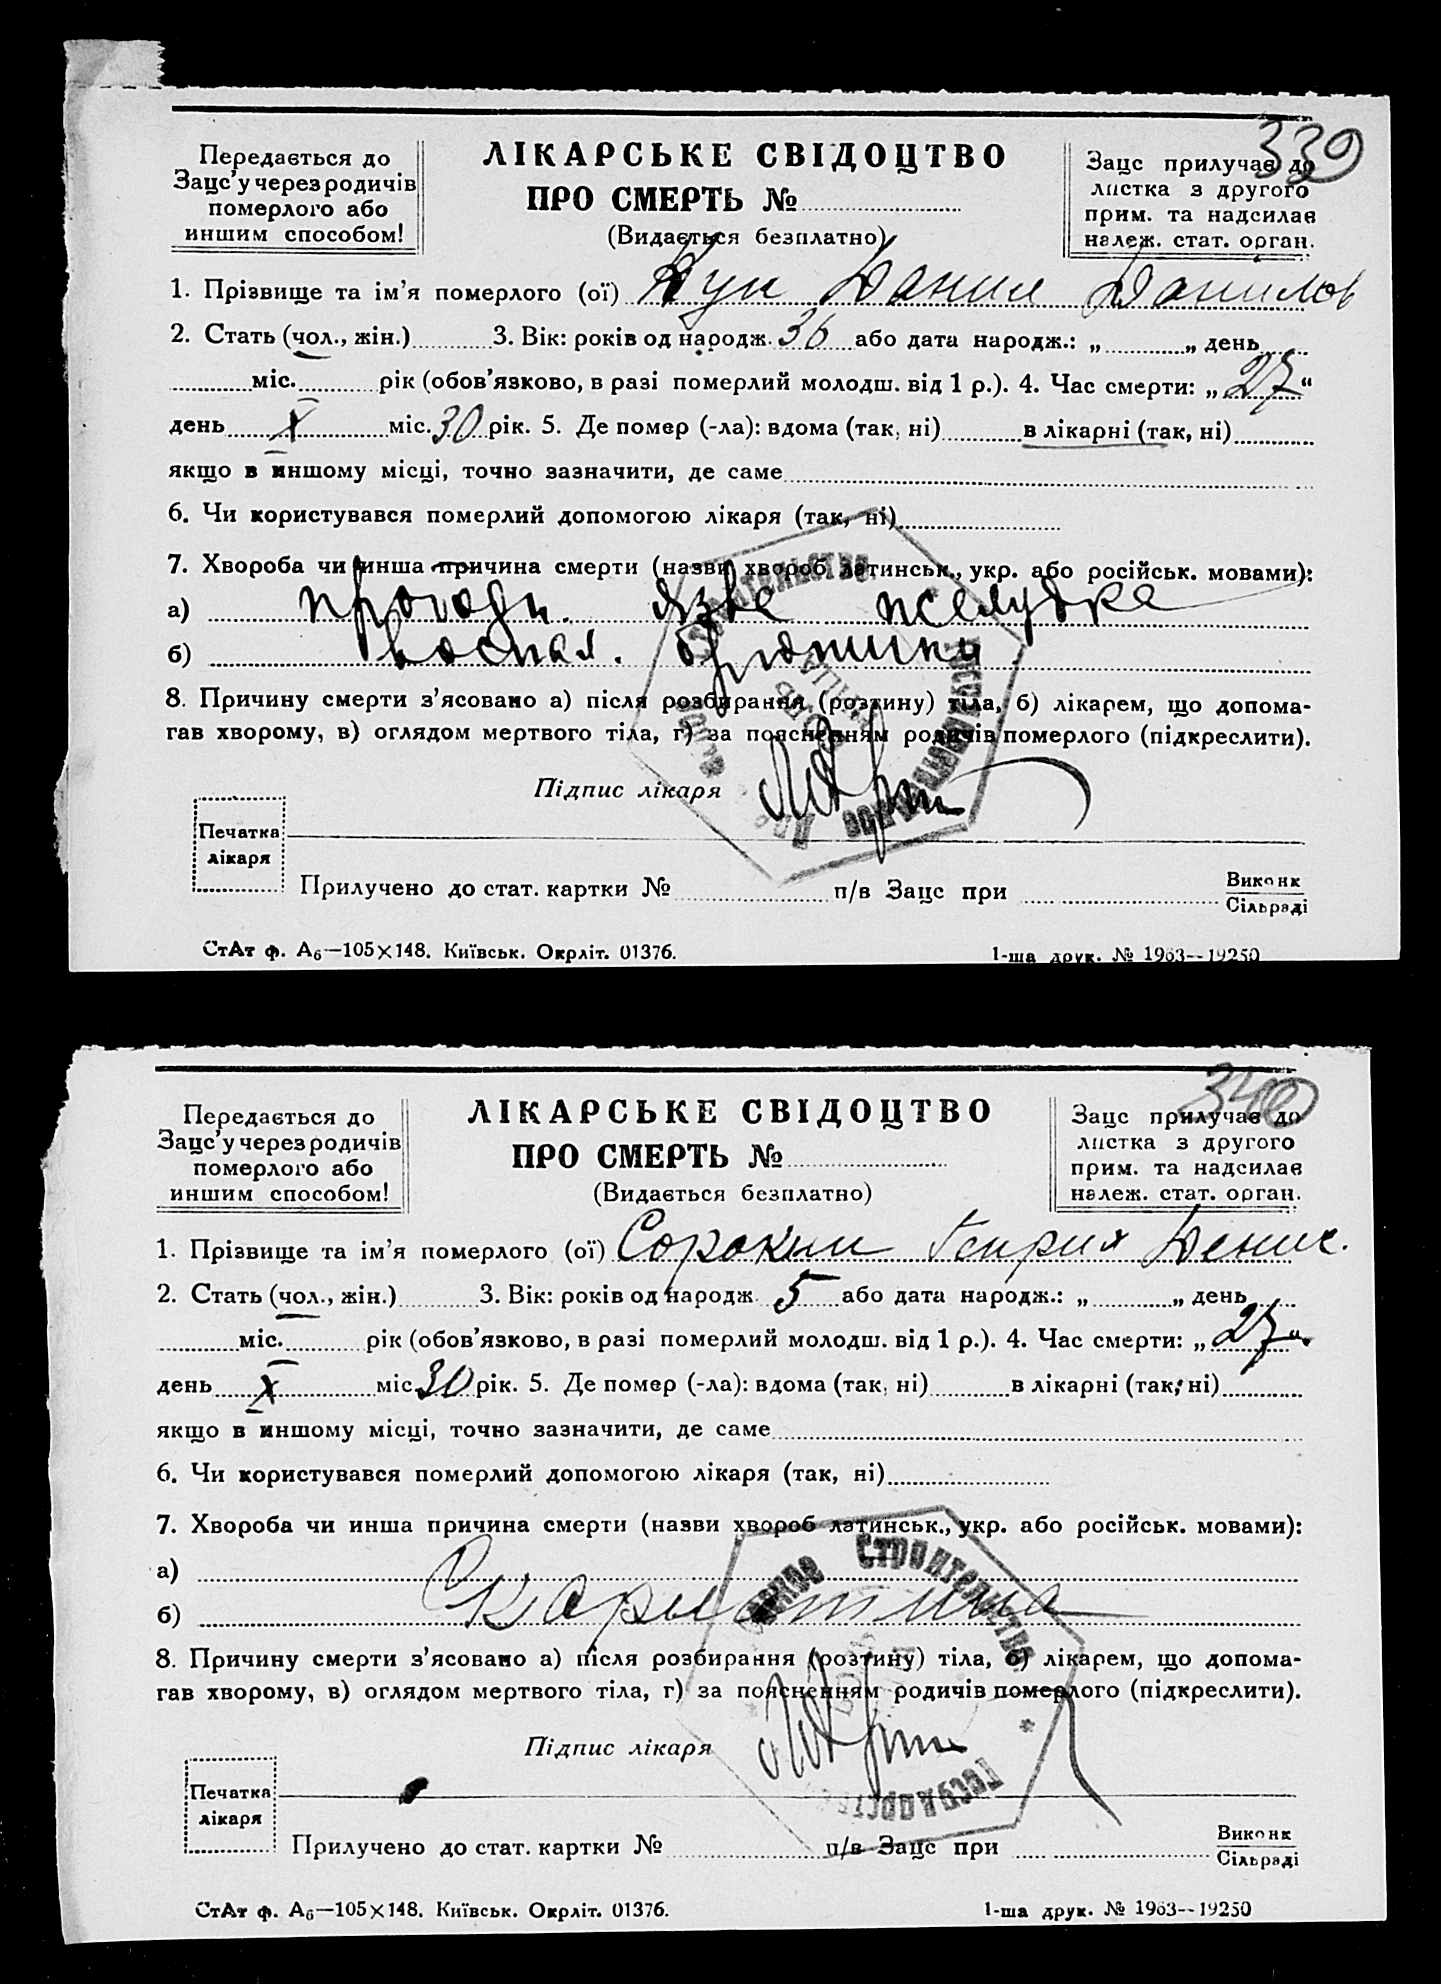 339
Передається до
Зацс'у через родичів
померлого або
иншим способом!
ЛІКАРСЬКЕ СВІДОЦТВО
ПРО СМЕРТЬ №
(Видається безплатно)
Зацс прилучає до
листка з другого
прим. та надсилає
належ. стат. орган.
1. Прізвище та ім'я померлого (ої) Кук Данил Данилов
2. Стать (чол., жін.) 3. Вік: років од народж. 36 або дата народж.: „ „ день
міс. рік (обов'язково, в разі померлий молодш. від 1 р.). 4. Час смерти: „ 27 “
день X міс. 30 рік. 5. Де помер (-ла): вдома (так, ні) в лікарні (так, ні)
якщо в иншому місці, точно зазначити, де саме
6. Чи користувався померлий допомогою лікаря (так, ні)
7. Хвороба чи инша причина смерти (назви хвороб латинськ., укр. або російськ. мовами):
а) язва желудка
б) воспал. брюшины
8. Причину смерти з'ясовано а) після розбирання (розтину) тіла, б) лікарем, що допома-
гав хворому, в) оглядом мертвого тіла, г) за поясненням родичів померлого (підкреслити).
Підпис лікаря
Печатка
лікаря
Прилучено до стат. картки № п/в Зацс при Виконк
Сільраді
СтАт ф. А6—105×148. Київськ. Окрліт. 01376. 1-ша друк. № 1963--19250
340
Передається до
Зацс'у через родичів
померлого або
иншим способом!
ЛІКАРСЬКЕ СВІДОЦТВО
ПРО СМЕРТЬ №
(Видається безплатно)
Зацс прилучає до
листка з другого
прим. та надсилає
належ. стат. орган.
1. Прізвище та ім'я померлого (ої) Сорокин Генрих Денис.
2. Стать (чол., жін.) 3. Вік: років од народж. 5 або дата народж.: „ „ день
міс. рік (обов'язково, в разі померлий молодш. від 1 р.). 4. Час смерти: „ 27 “
день X міс. 30 рік. 5. Де помер (-ла): вдома (так, ні) в лікарні (так, ні)
якщо в иншому місці, точно зазначити, де саме
6. Чи користувався померлий допомогою лікаря (так, ні)
7. Хвороба чи инша причина смерти (назви хвороб латинськ., укр. або російськ. мовами):
а)
б) Скарлатина
СТРОИТЕЛЬСТВО
8. Причину смерти з'ясовано а) після розбирання (розтину) тіла, б) лікарем, що допома-
гав хворому, в) оглядом мертвого тіла, г) за поясненням родичів померлого (підкреслити).
Підпис лікаря
Печатка
лікаря
Прилучено до стат. картки № п/в Зацс при Виконк
Сільраді
СтАт ф. А6—105×148. Київськ. Окрліт. 01376. 1-ша друк. № 1963--19250